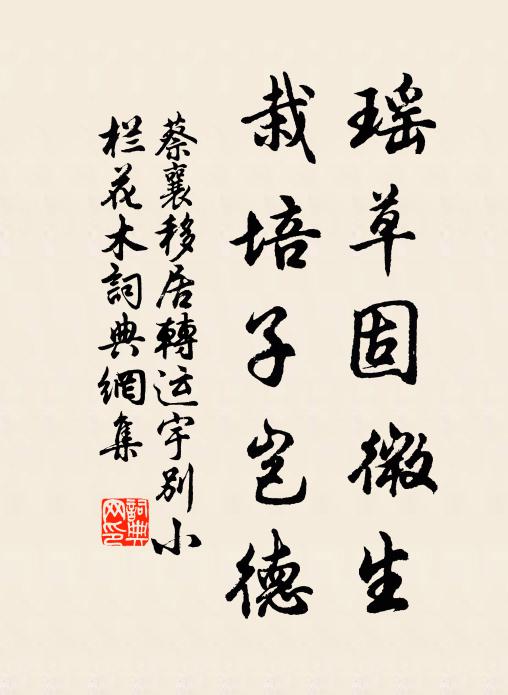 瑶草固微生
栽培子岂德
蔡襄移居轉运宇别小
栏花木詞典網集
詞典
网印